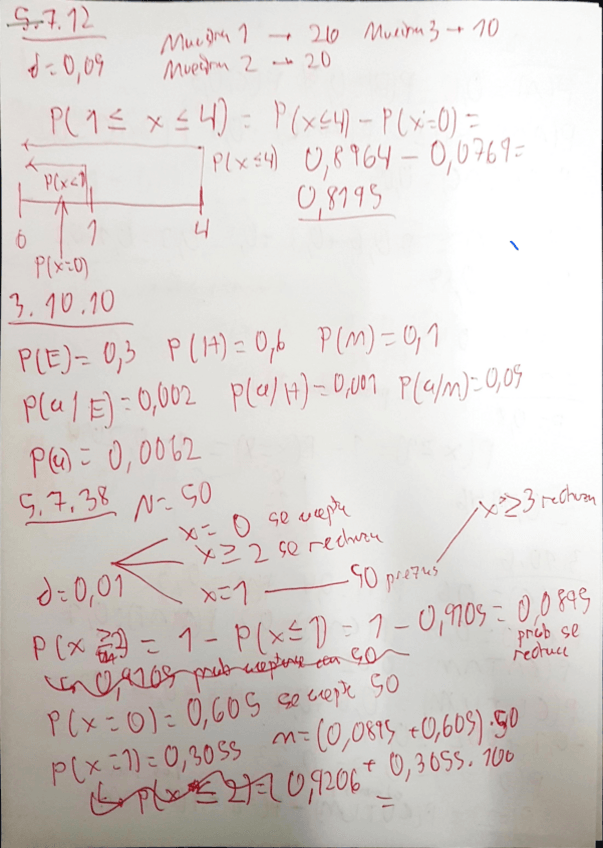 5.7.12
Muestra 1 → 20 Muestra 3 → 10
d=0,05 Muestra 2 → 20
P(1≤ x ≤4) = P(x≤4) - P(x=0) =
P(x≤4) 0,8964 - 0,0769=
P(x<1) 0,8195
0 1 4
P(x=0)
3.10.10
P(E)= 0,3 P(H)=0,6 P(M)=0,1
P(a/E)=0,002 P(a/H)=0,001 P(a/M)=0,05
P(a)= 0,0062
5.7.38 N=50
x=0 se acepta
x≥2 se rechaza
x≥3 rechaza
d=0,01 x=1 50 piezas
P(x≥2) = 1 - P(x≤1) = 1 - 0,9105 = 0,0895
prob se
rechace
0,9105 prob aceptarse con 50
P(x=0)=0,605 se acepta 50
P(x=1)=0,3055 n=(0,0895+0,605)·50
+ 0,3055.100
P(x≤2)=(0,9206 =